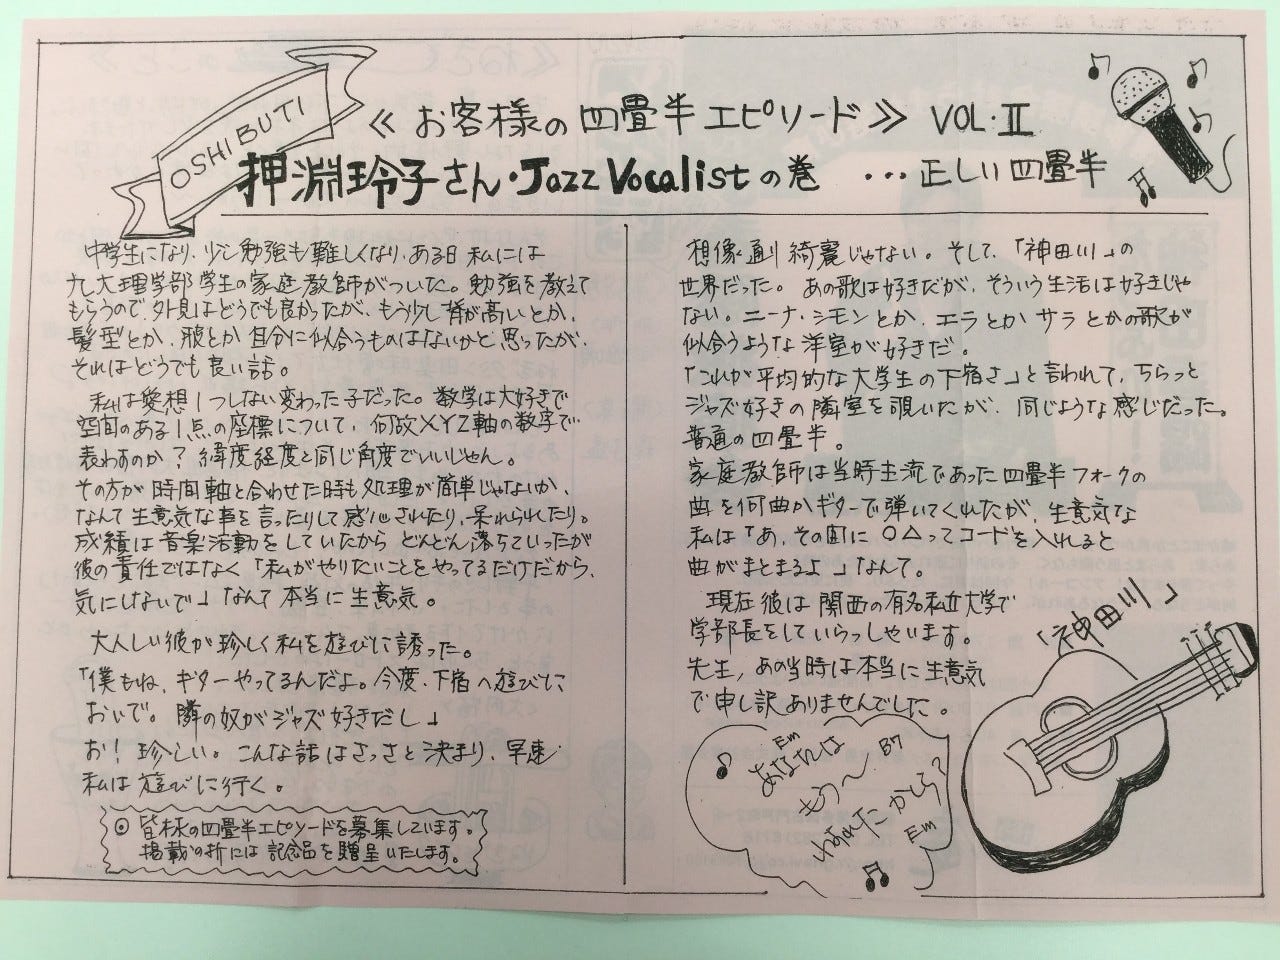 OSHIBUTI
≪お客様の四畳半エピソード≫ VOL.Ⅱ
押淵玲子さん・Jazz Vocalistの巻 ...正しい四畳半
中学生になり、少し勉強も難しくなり、ある日 私には
九大理学部学生の家庭教師がついた。勉強を教えて
もらうので、外見はどうでも良かったが、もう少し背が高いとか、
髪型とか、服とか自分に似合うものはないかと思ったが、
それはどうでも良い話。
私は愛想1つしない変わった子だった。数学は大好きで
空間のある1点の座標について、何故XYZ軸の数字で
表わすのか?緯度経度と同じ角度でいいじゃん。
その方が時間軸と合わせた時も処理が簡単じゃないか、
なんて生意気な事を言ったりして感心されたり、呆れられたり。
成績は音楽活動をしていたから どんどん落ちていったが
彼の責任ではなく「私がやりたいことをやってるだけだから、
気にしないで」なんて本当に生意気。
大人しい彼が珍しく私を遊びに誘った。
「僕もね、ギターやってるんだよ。今度、下宿へ遊びに
おいで。隣の奴がジャズ好きだし」
お!珍しい。こんな話はさっさと決まり、早速
私は遊びに行く。
◎皆様の四畳半エピソードを募集しています。
掲載の折には記念品を贈呈いたします。
想像通り綺麗じゃない。そして、「神田川」の
世界だった。あの歌は好きだが、そういう生活は好きじゃ
ない。ニーナ・シモンとか、エラとか サラとかの歌が
似合うような洋室が好きだ。
「これが平均的な大学生の下宿さ」と言われて、ちらっと
ジャズ好きの隣室を覗いたが、同じような感じだった。
普通の四畳半。
家庭教師は当時主流であった四畳半フォークの
曲を何曲かギターで弾いてくれたが、生意気な
私は「あ、その間に ○△ってコードを入れると
曲がまとまるよ」なんて。
現在彼は関西の有名私立大学で
学部長をしていらっしゃいます。
先生、あの当時は本当に生意気
で申し訳ありませんでした。
「神田川」
Em B7
あなたは
もう〜
わすれたかしら?
Em